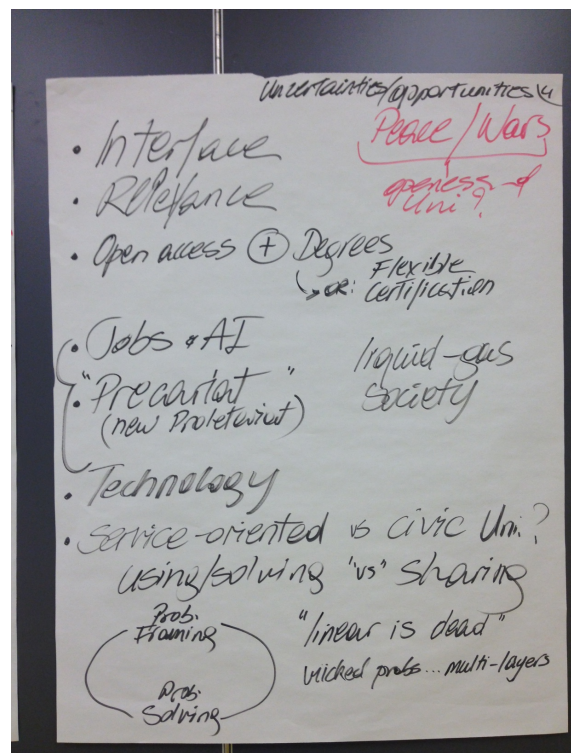 Uncertainties/opportunities 4
Peace/Wars
openess of
Uni?
• Interface
• Relevance
• Open access + Degrees
or: Flexible
certification
• Jobs & AI
• "Precariat"
(new Proletariat)
liquid-gas
society
• Technology
• Service-oriented vs civic Uni?
using/solving "vs" sharing
Prob.
Framing
Prob.
Solving
"linear is dead"
wicked probs... multi-layers